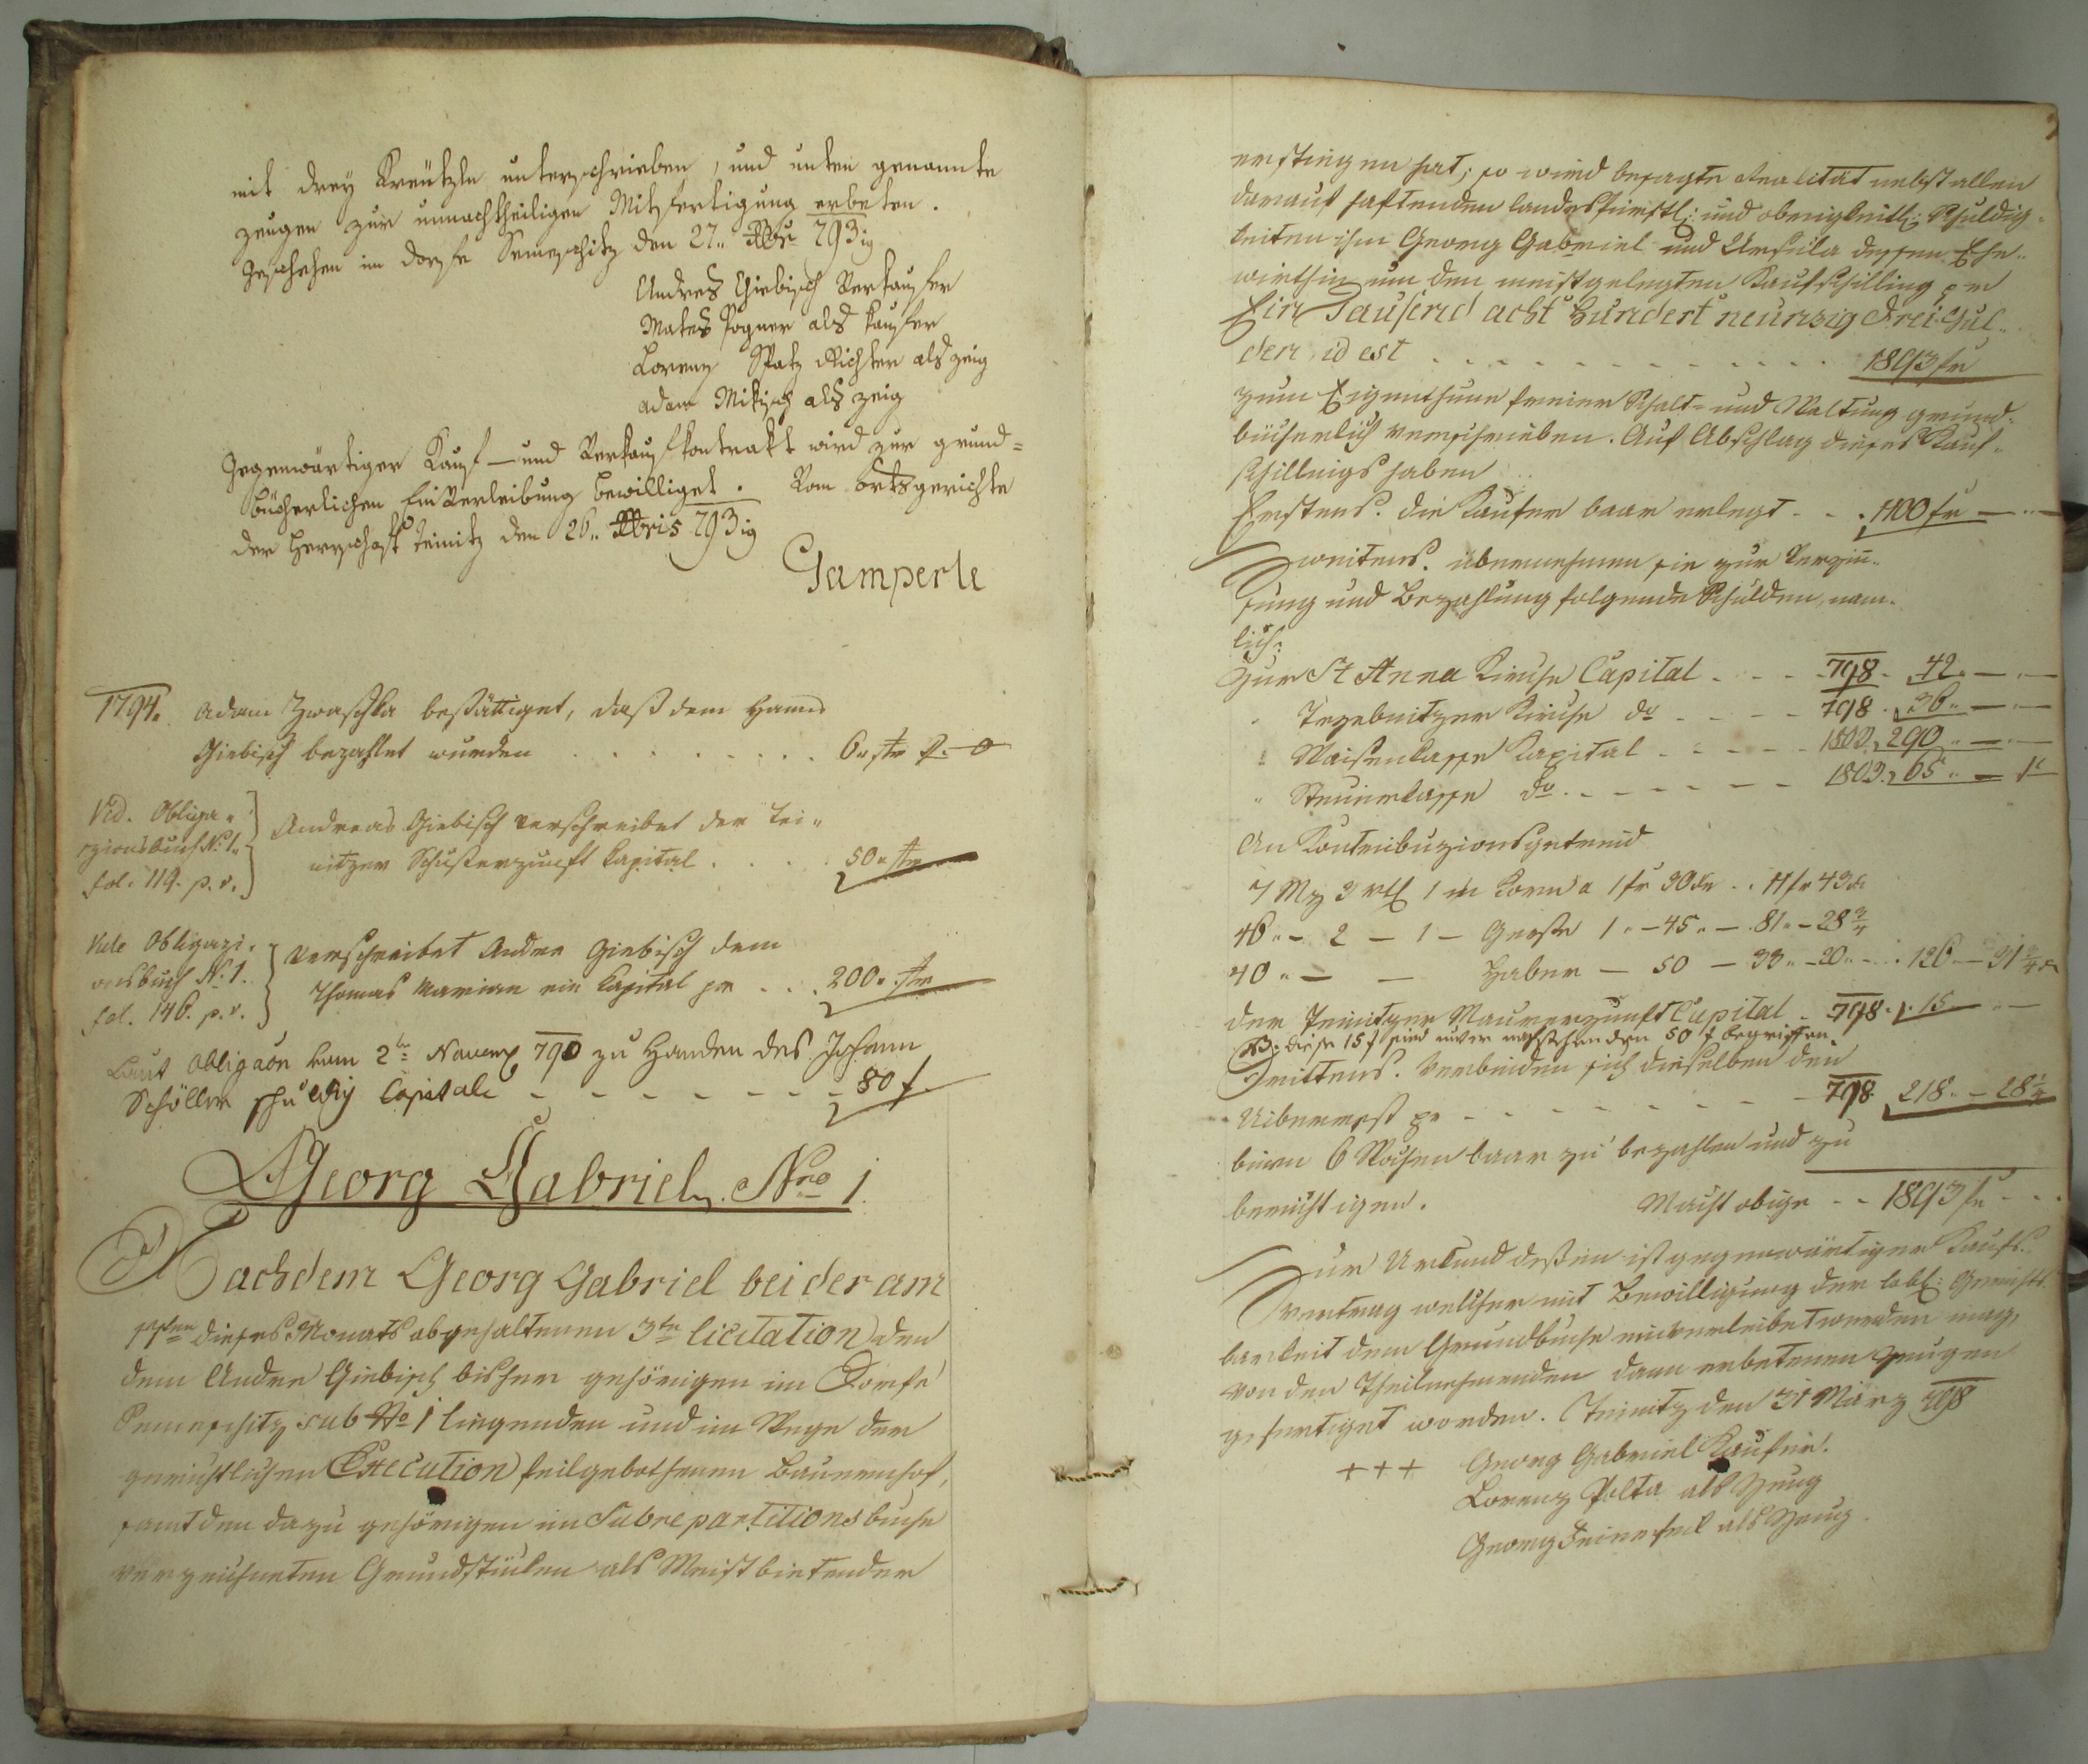 mit drey Kreützln unterschrieben, und unten genannte
zeugen zur unnachtheiligen Mitfertigung erbeten.
Geschehen im dorfe Semeschitz den 27.. 793ig
Andres Giebisch Verkaufer
Mates Pogner als kaufer
Lorenz Spatz Richter als zeig
adam Mikisch als zeig
Gegenwärtiger Kauf- und Verkaufkontrakt wird zur grund=
bücherlichen Einverleibung bewilliget. Vom ortsgerichte
der Herrschaft Teinitz den 26.. Xbris 793ig
Gamperle
1794. Adam Zwaschka bestättiget, daß dem Hanns
Giebisch bezahlet wurden
Vid. Obliga=
zionsbuch No 1.
fol. 119. p. v.
Andreas Giebisch verschreibet der Tei=
nitzer Schusterzunft Kapital . . . 50 fr
Vide Obligazi=
onsbuch No 1.
fol. 146. p. v.
verschreibet Andre Giebisch dem
Thomas Marian ein Kapital pr . . . 200 fr
Laut obligaon vom 2tn Novemb 790 zu Handen des Johann
Schöller schuldig Capitale - - - - - - - 80 f
Georg Gabriel. Nro 1.
Nachdem Georg Gabriel bei der am
17ten dieses Monats abgehaltenen 3ten licitation den
dem Andre Giebisch bisher gehörigen im Dorfe
Semeschitz sub No 1 liegenden und im Wege der
gerichtlichen Execution feilgebothenen Bauernhof,
samt den dazu gehörigen im Subrepartitionsbuche
verzeichneten Grundstüken als Meistbietender
erstiegen hat; so wird besagte Realität nebst allen
darauf haftenden landesfürstl: und obrigkeitl: Schuldig=
keiten ihm Georg Gabriel und Ursula dessen Ehe=
wirthin um den meistgelegten Kaufschilling pr
Ein Tausend acht Hundert neunzig Drei Gul=
den, id est . . . . . . . . . . 1893 fr
zum Eigenthume freier Schalt- und Waltung grund=
bücherlich verschrieben. Auf Abschlag dieses Kauf=
schillings haben
Erstens. die Kaufer baar erlegt . . . 1100 fr —
Zweitens. übernehmen sie zur Verzin=
sung und Bezahlung folgende Schulden, näm=
lich:
Zur St Anna Kirche Capital . . . 798. 42. —
" Tezebnitzer Kirche do . . . 798. 36. —
" Waisenkasse Kapital . . . 1803. 290 —
" Steuerkasse do . . . 1803. 65 —
An Kontribuzionsgetreid
7 Mz 3 vtl 1 m Korn a 1 fr 30 kr . . 11 fr 43 kr
46 - 2 - 1 - Gerste 1 - 45 - 81 - 28 3/4
40 - - Haber - 50 - 33 - 20 - 126 - 31 3/4 kr
der Teinitzer Maurerzunft Capital . 798. 15 —
NB. diese 15 f sind unter nachstehenden 50 f begriffen
Drittens. verbinden sich dieselben den
Uiberrest pr - - - - - - 798. 218 - 28 1/4
binen 6 Wochen baar zu bezahlen und zu
berichtigen. Macht obige - - 1893 fr - - -
Zur Urkund dessen ist gegenwärtiger Kaufs=
vertrag welcher mit Bewilligung der löbl: Gerichts=
barkeit dem Grundbuche einverleibet werden mag,
von den Theilnehmenden dann erbetenen Zeugen
gefertiget worden. Teinitz den 31 März 798
+++ Georg Gabriel Kaufer.
Lorenz Polta als Zeug
Georg als Zeug.